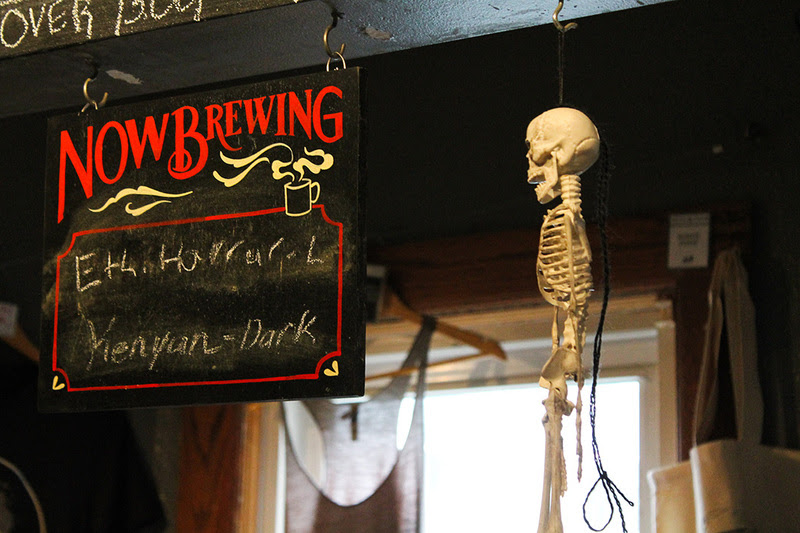 OVER
NOW BREWING
Eth. Harrar-L
Kenyan-Dark